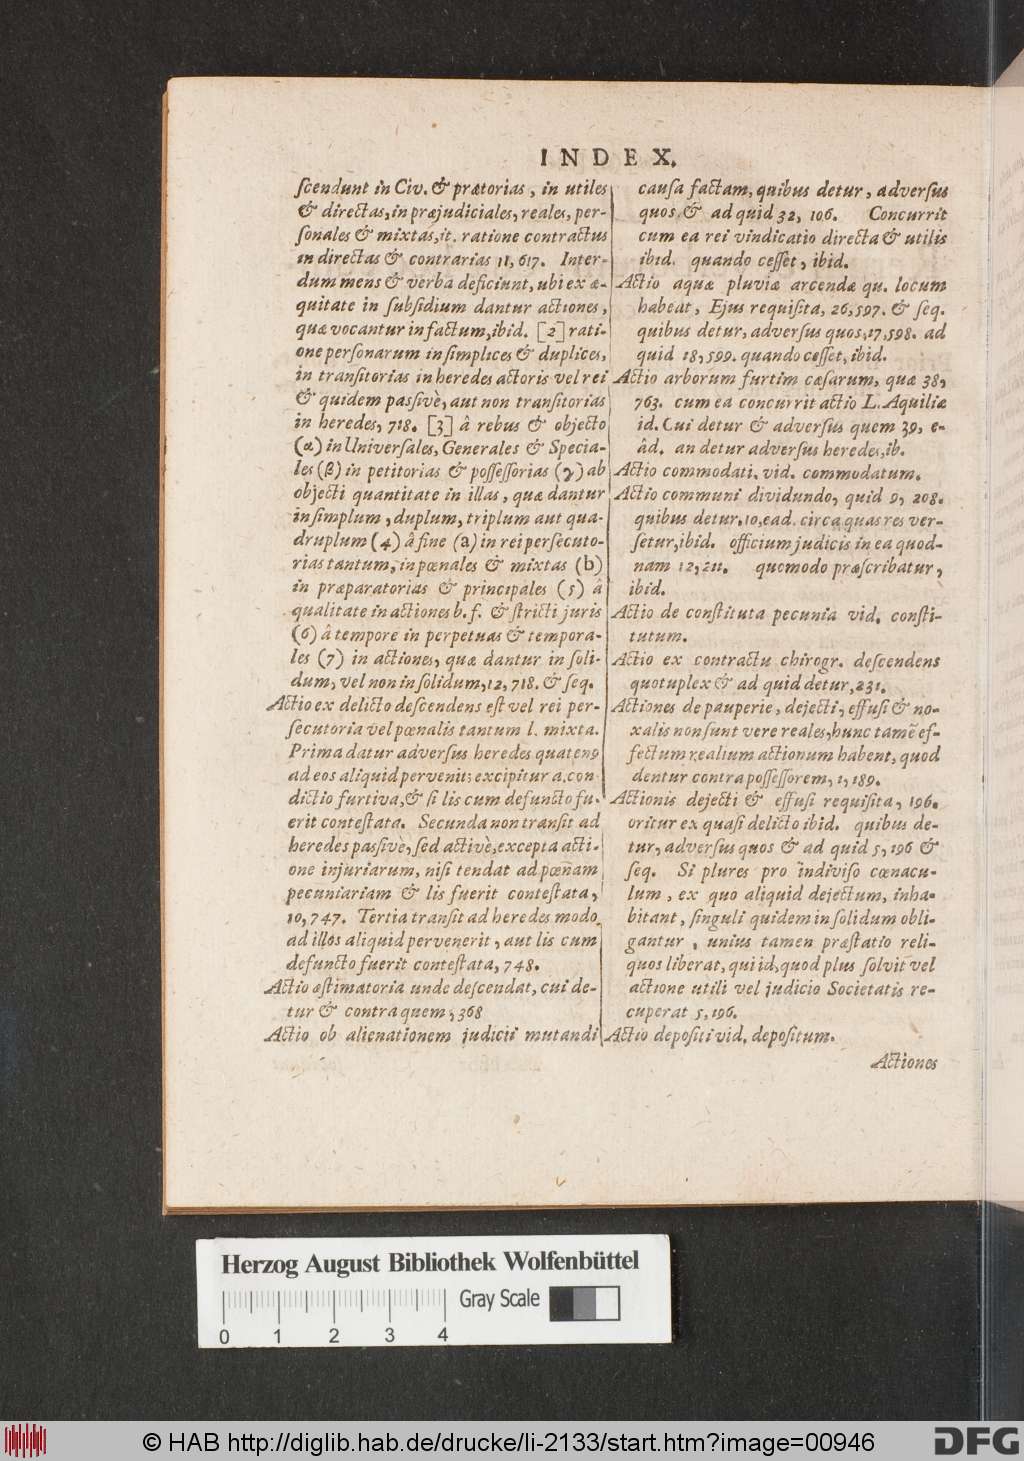 INDEX.
ſcendunt in Civ. & prætorias, in utiles
& directas, in præjudiciales, reales, per-
ſonales & mixtas, it. ratione contractus
in directas & contrarias 11, 617. Inter-
dum mens & verba deficiunt, ubi ex æ-
quitate in ſubſidium dantur actiones,
quæ vocantur in factum, ibid. [2] rati-
one perſonarum in ſimplices & duplices,
in tranſitorias in heredes actoris vel rei
& quidem paſſivè, aut non tranſitorias
in heredes, 718. [3] â rebus & objecto
(α) in Univerſales, Generales & Specia-
les (β) in petitorias & poſſeſſorias (γ) ab
objecti quantitate in illas, quæ dantur
in ſimplum, duplum, triplum aut qua-
druplum (4) â fine (a) in rei perſecuto-
rias tantum, in pœnales & mixtas (b)
in præparatorias & principales (5) â
qualitate in actiones b. f. & ſtricti juris
(6) â tempore in perpetuas & tempora-
les (7) in actiones, quæ dantur in ſoli-
dum, vel non in ſolidum, 12, 718. & ſeq.
Actio ex delicto deſcendens eſt vel rei per-
ſecutoria vel pœnalis tantum l. mixta.
Prima datur adverſus heredes quatenꝰ
ad eos aliquid pervenit; excipitur a. con-
dictio furtiva, & ſi lis cum defuncto fu-
erit conteſtata. Secunda non tranſit ad
heredes paſſivè, ſed activè, excepta acti-
one injuriarum, niſi tendat ad pœnam
pecuniariam & lis fuerit conteſtata,
10, 747. Tertia tranſit ad heredes modo
ad illos aliquid pervenerit, aut lis cum
defuncto fuerit conteſtata, 748.
Actio æſtimatoria unde deſcendat, cui de-
tur & contra quem, 368
Actio ob alienationem judicii mutandi
cauſa factam, quibus detur, adverſus
quos & ad quid 32, 106. Concurrit
cum ea rei vindicatio directa & utilis
ibid. quando ceſſet, ibid.
Actio aquæ pluviæ arcendæ qu. locum
habeat, Ejus requiſita, 26, 597. & ſeq.
quibus detur, adverſus quos, 17, 598. ad
quid 18, 599. quando ceſſet, ibid.
Actio arborum furtim cæſarum, quæ 38,
763. cum ea concurrit actio L. Aquiliæ
id. Cui detur & adverſus quem 39, e-
âd. an detur adverſus heredes, ib.
Actio commodati, vid. commodatum.
Actio communi dividundo, quid 9, 208.
quibus detur. 10, ead. circa quas res ver-
ſetur, ibid. officium judicis in ea quod-
nam 12, 211. quomodo præſcribatur,
ibid.
Actio de conſtituta pecunia vid. conſti-
tutum.
Actio ex contractu chirogr. deſcendens
quotuplex & ad quid detur, 231.
Actiones de pauperie, dejecti, effuſi & no-
xalis non ſunt vere reales, hunc tamẽ ef-
fectum realium actionum habent, quod
dentur contra poſſeſſorem, 1, 189.
Actionis dejecti & effuſi requiſita, 196.
oritur ex quaſi delicto ibid. quibus de-
tur, adverſus quos & ad quid 5, 196 &
ſeq. Si plures pro indiviſo cœnacu-
lum, ex quo aliquid dejectum, inha-
bitant, ſinguli quidem in ſolidum obli-
gantur, unius tamen præſtatio reli-
quos liberat, qui id, quod plus ſolvit vel
actione utili vel judicio Societatis re-
cuperat 5, 196.
Actio depoſiti vid. depoſitum.
Actiones
Herzog August Bibliothek Wolfenbüttel
Gray Scale
0 1 2 3 4
© HAB http://diglib.hab.de/drucke/li-2133/start.htm?image=00946
DFG